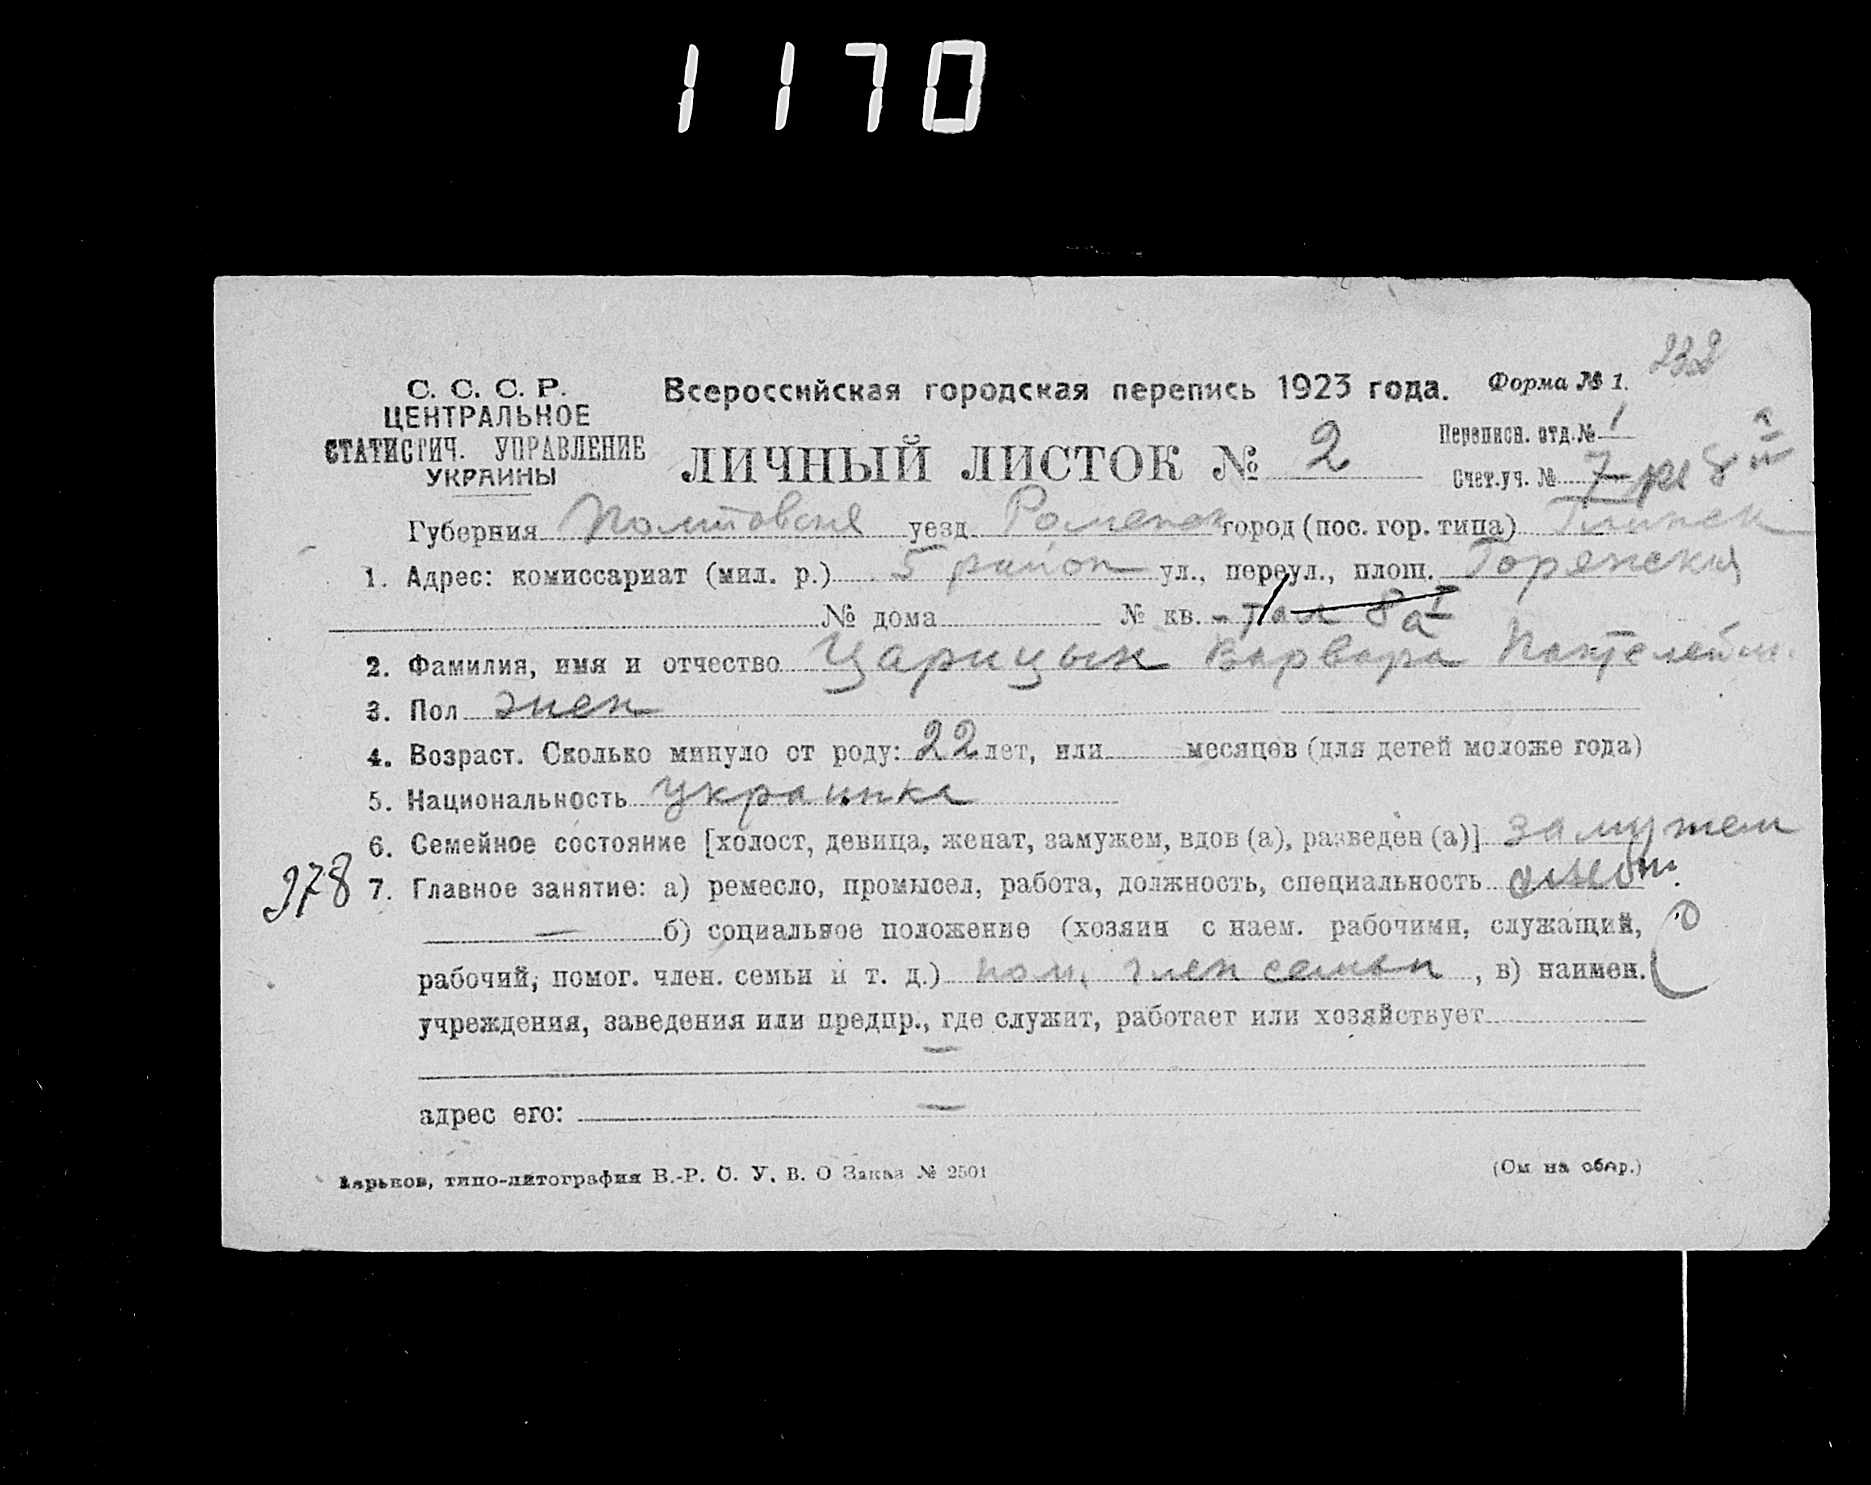 1170
232
С. С. С. Р.
ЦЕНТРАЛЬНОЕ
СТАТИСТИЧ. УПРАВЛЕНИЕ
УКРАИНЫ
Всероссийская городская перепись 1923 года. Форма № 1.
ЛИЧНЫЙ ЛИСТОК № 2
Переписн. отд. № 1
Счет. уч. № 7
Губерния Полтовская уезд Роменск город (пос. гор. типа) Глинск
1. Адрес: комиссариат (мил. р.) 5 район ул., переул., площ.
№ дома № кв.
2. Фамилия, имя и отчество Царицын Варвара Пантелейм.
3. Пол жен
4. Возраст. Сколько минуло от роду: 22 лет, или месяцев (для детей моложе года)
5. Национальность Украинка
6. Семейное состояние [холост, девица, женат, замужем, вдов (а), разведен (а)] замужем
978 7. Главное занятие: а) ремесло, промысел, работа, должность, специальность
— б) социальное положение (хозяин с наем. рабочими, служащий,
рабочий, помог. член. семьи и т. д.) пом. член семьи, в) наимен.
учреждения, заведения или предпр., где служит, работает или хозяйствует
—
адрес его: —
Харьков, типо-литография В.-Р. С. У. В. О Заказ № 2501 (См на обор.)